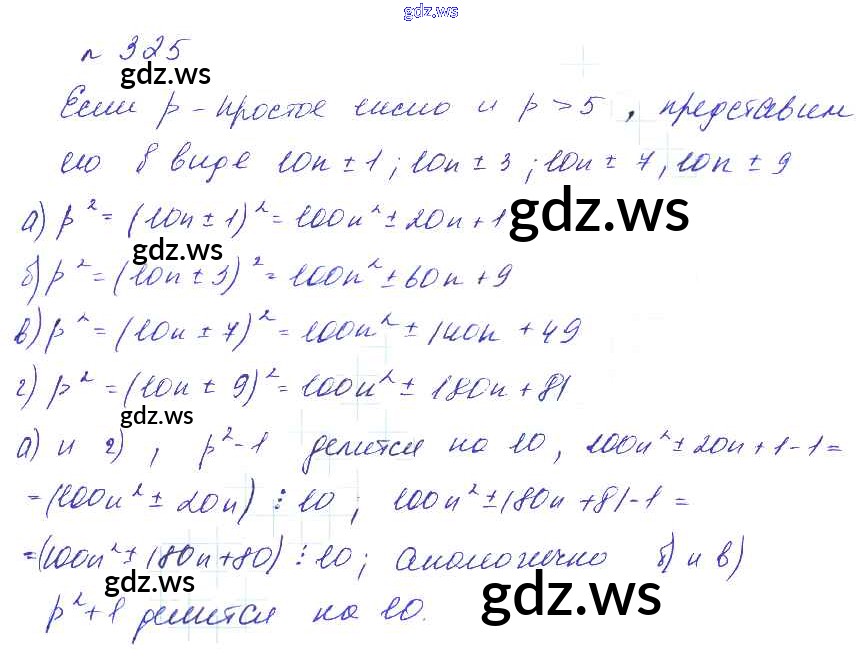 gdz.ws
n 325
gdz.ws
Если p - простое число и p > 5, представим
его в виде 10n ± 1; 10n ± 3; 10n ± 7, 10n ± 9
а) p² = (10n ± 1)² = 100n² ± 20n + 1
gdz.ws
gdz.ws
б) p² = (10n ± 3)² = 100n² ± 60n + 9
в) p² = (10n ± 7)² = 100n² ± 140n + 49
г) p² = (10n ± 9)² = 100n² ± 180n + 81
gdz.ws
а) и г), p² - 1 делится на 10, 100n² ± 20n + 1 - 1 =
= (100n² ± 20n) ⋮ 10; 100n² ± 180n + 81 - 1 =
= (100n² ± 180n + 80) ⋮ 10; аналогично б) и в)
gdz.ws
gdz.ws
p² + 1 делится на 10.